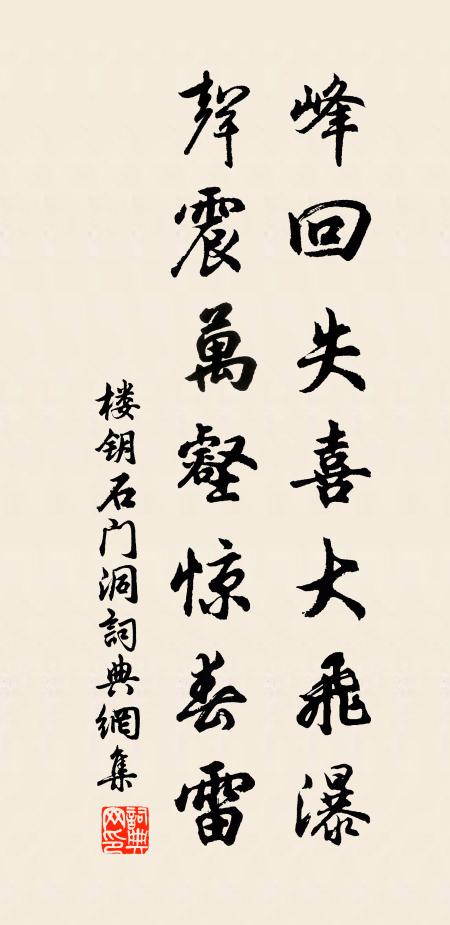 峰回失喜大飛瀑
聲震萬壑惊春雷
楼钥石门洞詞典網集
詞典网印